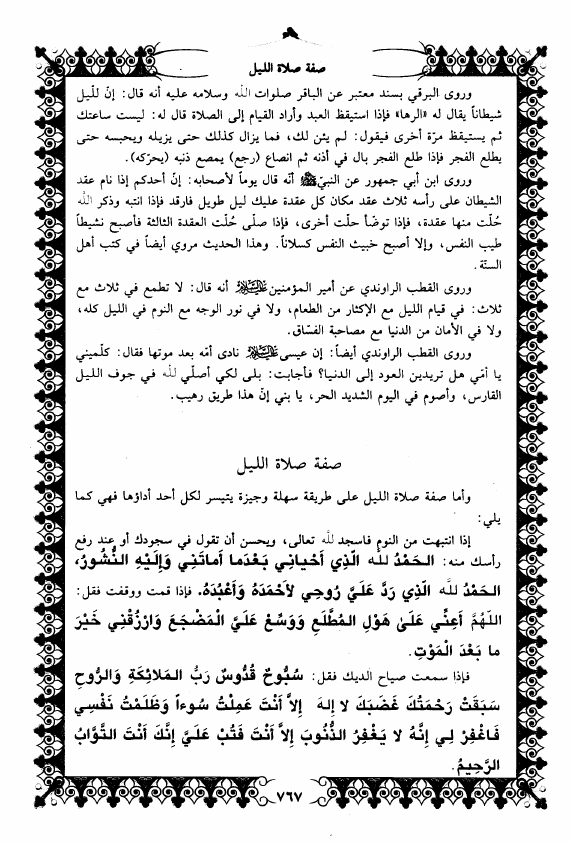 صفة صلاة الليل
وروى البرقي بسند معتبر عن الباقر صلوات الله وسلامه عليه أنه قال: إنّ للّيل
شيطاناً يقال له «الرها» فإذا استيقظ العبد وأراد القيام إلى الصلاة قال له: ليست ساعتك
ثم يستيقظ مرّة أخرى فيقول: لم يئن لك، فما يزال كذلك حتى يزيله ويحبسه حتى
يطلع الفجر فإذا طلع الفجر بال في أذنه ثم انصاع (رجع) يمصع ذنبه (يحرّكه).
وروى ابن أبي جمهور عن النبيّ ﷺ أنّه قال يوماً لأصحابه: إنّ أحدكم إذا نام عقد
الشيطان على رأسه ثلاث عقد مكان كل عقدة عليك ليل طويل فارقد فإذا انتبه وذكر الله
حُلّت منها عقدة، فإذا توضّأ حلّت أخرى، فإذا صلّى حُلّت العقدة الثالثة فأصبح نشيطاً
طيب النفس، وإلا أصبح خبيث النفس كسلاناً. وهذا الحديث مروي أيضاً في كتب أهل
السنّة.
وروى القطب الراوندي عن أمير المؤمنين عليه السلام أنه قال: لا تطمع في ثلاث مع
ثلاث: في قيام الليل مع الإكثار من الطعام، ولا في نور الوجه مع النوم في الليل كله،
ولا في الأمان من الدنيا مع مصاحبة الفسّاق.
وروى القطب الراوندي أيضاً: إن عيسى عليه السلام نادى أمّه بعد موتها فقال: كلّميني
يا أمّي هل تريدين العود إلى الدنيا؟ فأجابت: بلى لكي أصلّي لله في جوف الليل
القارس، وأصوم في اليوم الشديد الحر، يا بني إنّ هذا طريق رهيب.
صفة صلاة الليل
وأما صفة صلاة الليل على طريقة سهلة وجيزة يتيسر لكل أحد أداؤها فهي كما
يلي:
إذا انتبهت من النوم فاسجد لله تعالى، ويحسن أن تقول في سجودك أو عند رفع
رأسك منه: الحَمْدُ لله الَّذِي أَحْيانِي بَعْدَما أَماتَنِي وَإِلَيْهِ النُّشُورُ،
الحَمْدُ لله الَّذِي رَدَّ عَلَيَّ رُوحِي لأَحْمَدَهُ وَأَعْبُدَهُ. فإذا قمت ووقفت فقل:
اللهُمَّ أَعِنِّي عَلَىٰ هَوْلِ المُطَّلَعِ وَوَسِّعْ عَلَيَّ المَضْجَعَ وَارْزُقْنِي خَيْرَ
ما بَعْدَ المَوْتِ.
فإذا سمعت صياح الديك فقل: سُبُّوحٌ قُدُّوسٌ رَبُّ المَلائِكَةِ وَالرُّوحِ
سَبَقَتْ رَحْمَتُكَ غَضَبَكَ لا إلهَ إِلاَّ أَنْتَ عَمِلْتُ سُوءاً وَظَلَمْتُ نَفْسِي
فَاغْفِرْ لِي إِنَّهُ لا يَغْفِرُ الذُّنُوبَ إِلاَّ أَنْتَ فَتُبْ عَلَيَّ إِنَّكَ أَنْتَ التَّوَّابُ
الرَّحِيمُ.
٧٦٧